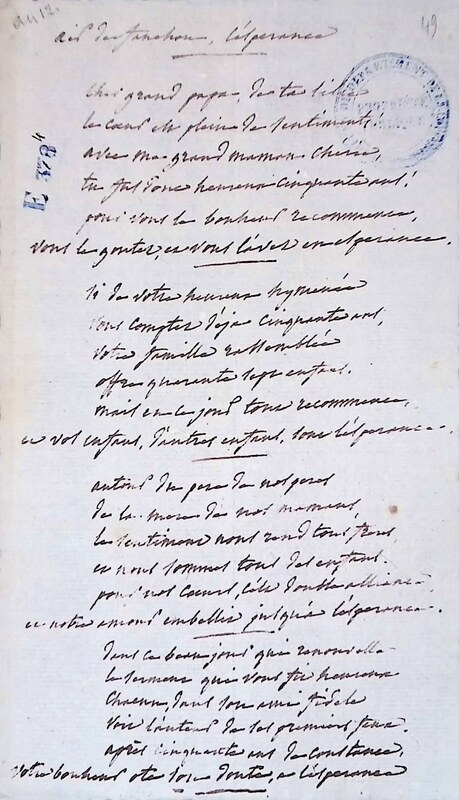 an 12.
49
air de fanchon, l'esperance
E 328"
cher grand papa, de ta
le coeur est plein de sentiment,
avec ma grand maman cherie,
tu fus donc heureux cinquante ans!
pour vous le bonheur recommence,
vous le goutez, et vous l'avez en esperance.
si de votre heureux hymenée
vous comptez deja cinquante ans,
votre famille rassemblée
offre quarante sept enfans.
mais en ce jour tout recommence,
et vos enfans, d'autres enfans, sont l'esperance.
autour du pere de nos peres
de la mere de nos mamans,
le sentiment nous rend tous freres,
et nous sommes tous des enfans.
pour nos coeurs, cette double alliance
et notre amour embellir jusqu'à l'esperance.
dans ce beau jour qui renouvelle
le serment qui vous fit heureux
chacun, dans son ami fidele
voit l'auteur de ses premiers feux.
après cinquante ans de constance,
votre bonheur ote son doute, a l'esperance